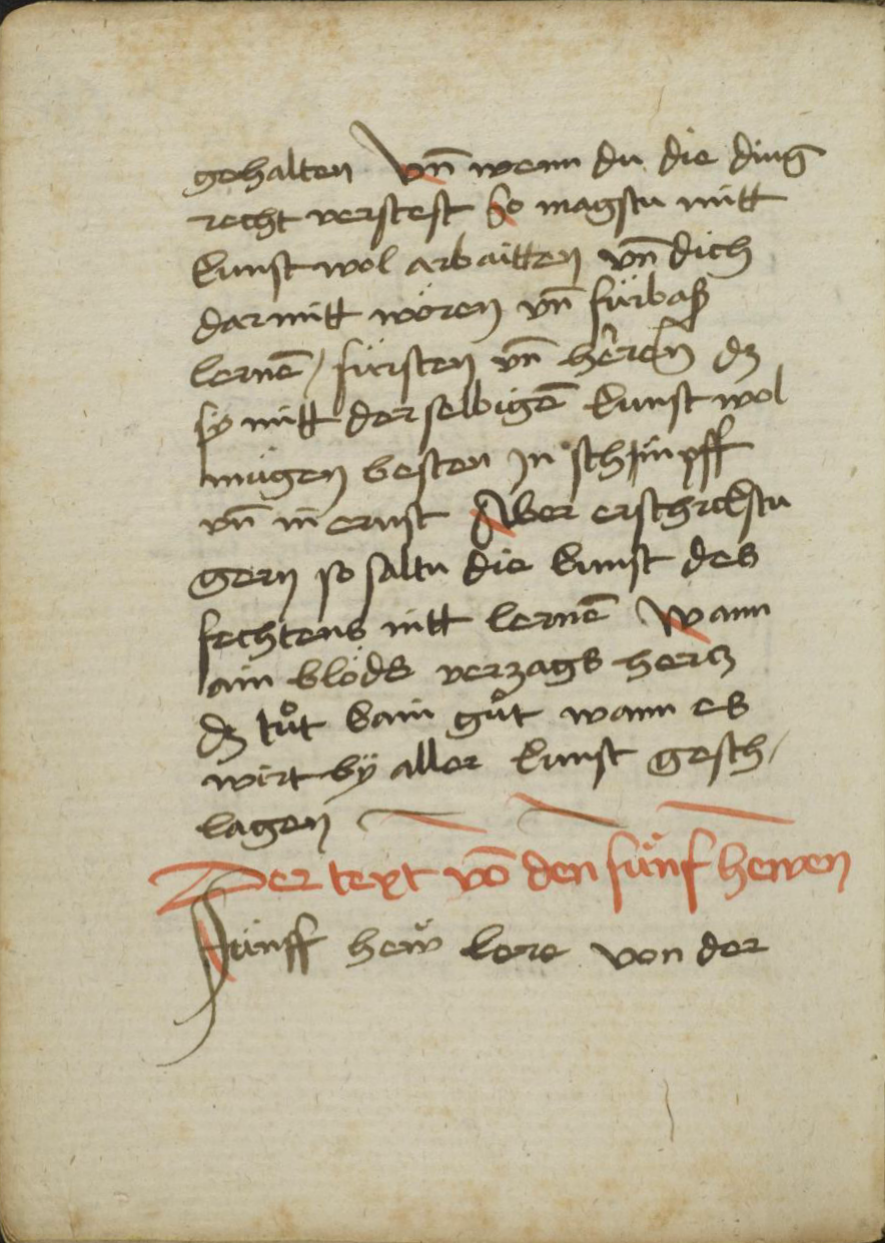 gehalten Vn̄ wenn du die ding
recht verstest So magstu mitt
kunst wol arbaitten vn̄ dich
darmitt wören vn̄ fürbaß
lernē / fürsten vn̄ herren dz
sy mitt der selbigē kunst wol
mügen besten In schimpff
vn̄ in ernst Aber erschrickstu
gern so saltu die kunst des
fechtens nitt lernē Wann
ain blöds verzags hercz
dz tůt kain gůt wann es
wirt bÿ aller kunst gesch/
lagen
Der text võ den fünf hewen
Fünff hew̆ lere von der